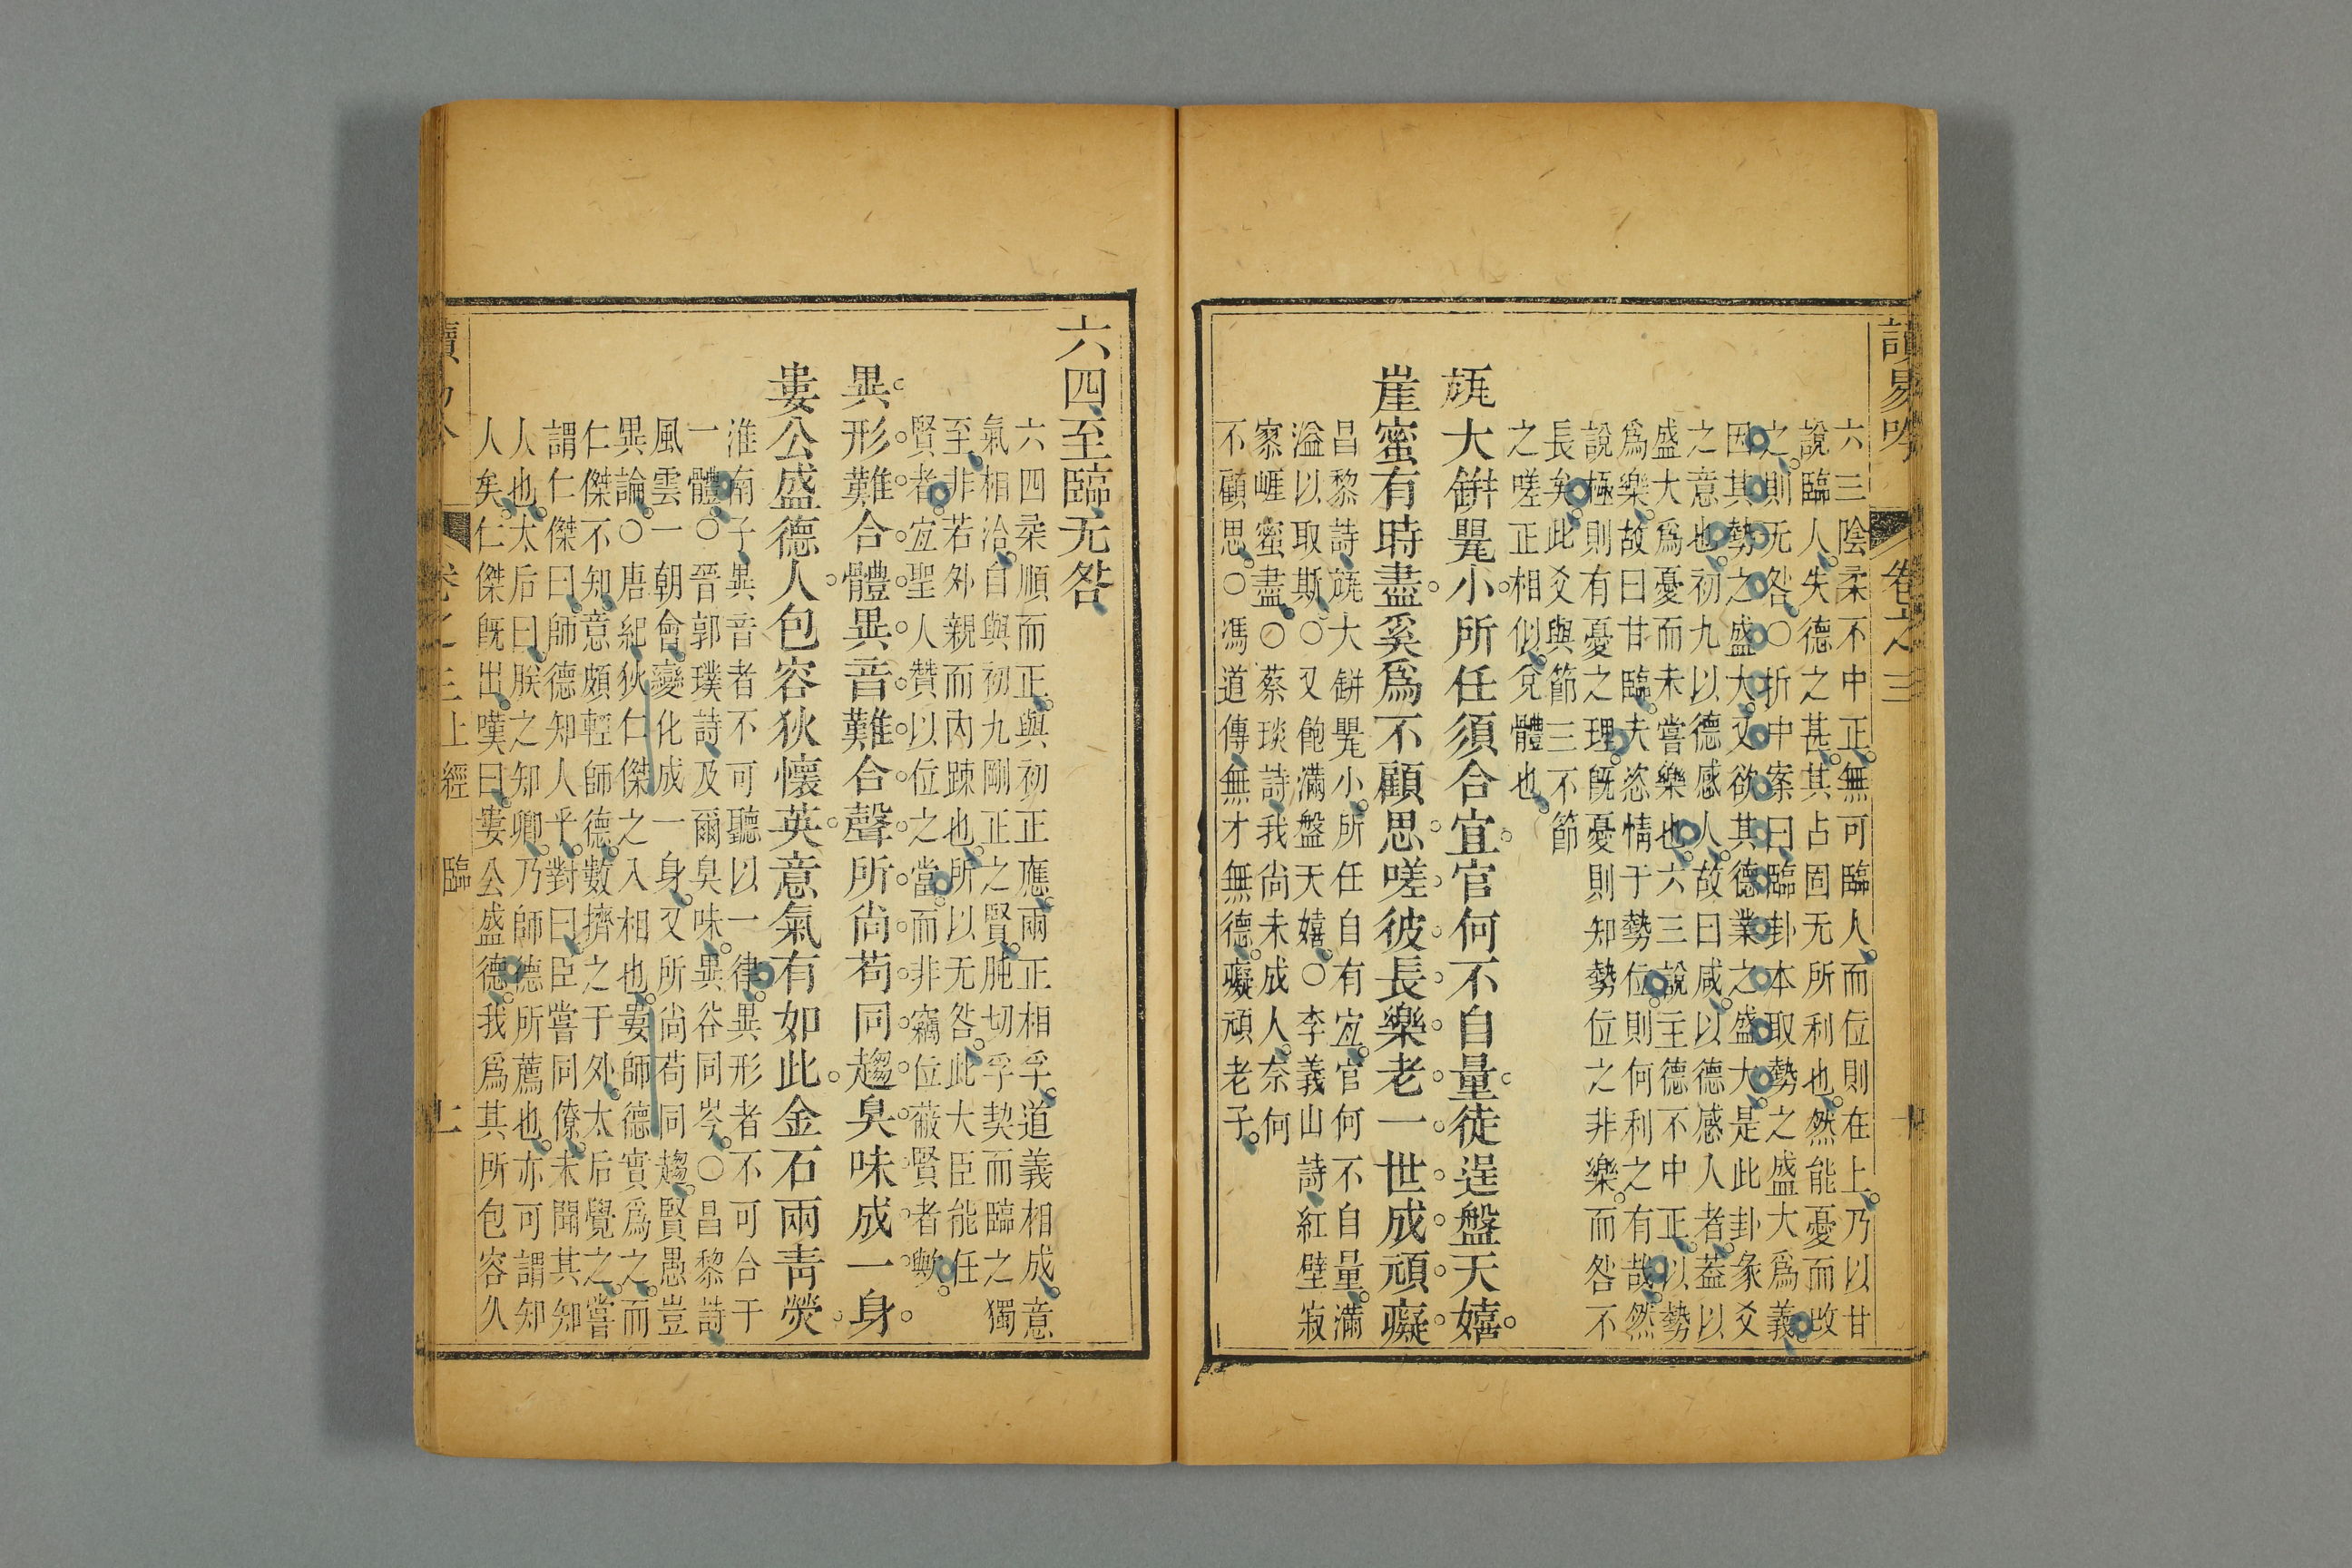 讀易吟 卷之三 十
六三陰柔不中正無可臨人而位則在上乃以甘
說臨人失德之甚其占固无所利也然能憂而改
之則无咎○折中案曰臨卦本取勢之盛大爲義
因其勢之盛大又欲其德業之盛大是此卦彖爻
之意也初九以德感人故曰咸以德感人者蓋以
盛大爲憂而未嘗樂也六三說主德不中正以勢
爲樂故曰甘臨夫恣情于勢位則何利之有哉然
說極則有憂之理既憂則知勢位之非樂而咎不
長矣此爻與節三不節
之嗟正相似兌體也
巯大缾罌小所任須合宜官何不自量徒逞盤天嬉
崖蜜有時盡奚爲不顧思嗟彼長樂老一世成頑癡
昌黎詩巯大缾罌小所任自有宜官何不自量滿
溢以取斯○又飽滿盤天嬉○李義山詩紅壁寂
寥崕蜜盡○蔡琰詩我尙未成人奈何
不顧思○馮道傳無才無德癡頑老子
六四至臨无咎
六四柔順而正與初正應兩正相孚道義相成意
氣相洽自與初九剛正之賢肫切孚契而臨之獨
至非若外親而內踈也所以无咎此大臣能任
賢者宜聖人贊以位之當而非竊位蔽賢者歟
異形難合體異音難合聲所尙苟同趨臭味成一身
婁公盛德人包容狄懷英意氣有如此金石兩靑熒
淮南子異音者不可聽以一律異形者不可合于
一體○晉郭璞詩及爾臭味異谷同岑○昌黎詩
風雲一朝會變化成一身又所尙苟同趨賢愚豈
異論○唐紀狄仁傑之入相也婁師德實爲之而
仁傑不知意頗輕師德數擠之于外太后覺之嘗
謂仁傑曰師德知人乎對曰臣嘗同僚未聞其知
人也太后曰朕之知卿乃師德所薦也亦可謂知
人矣仁傑既出嘆曰婁公盛德我爲其所包容久
卷之三 上經 臨